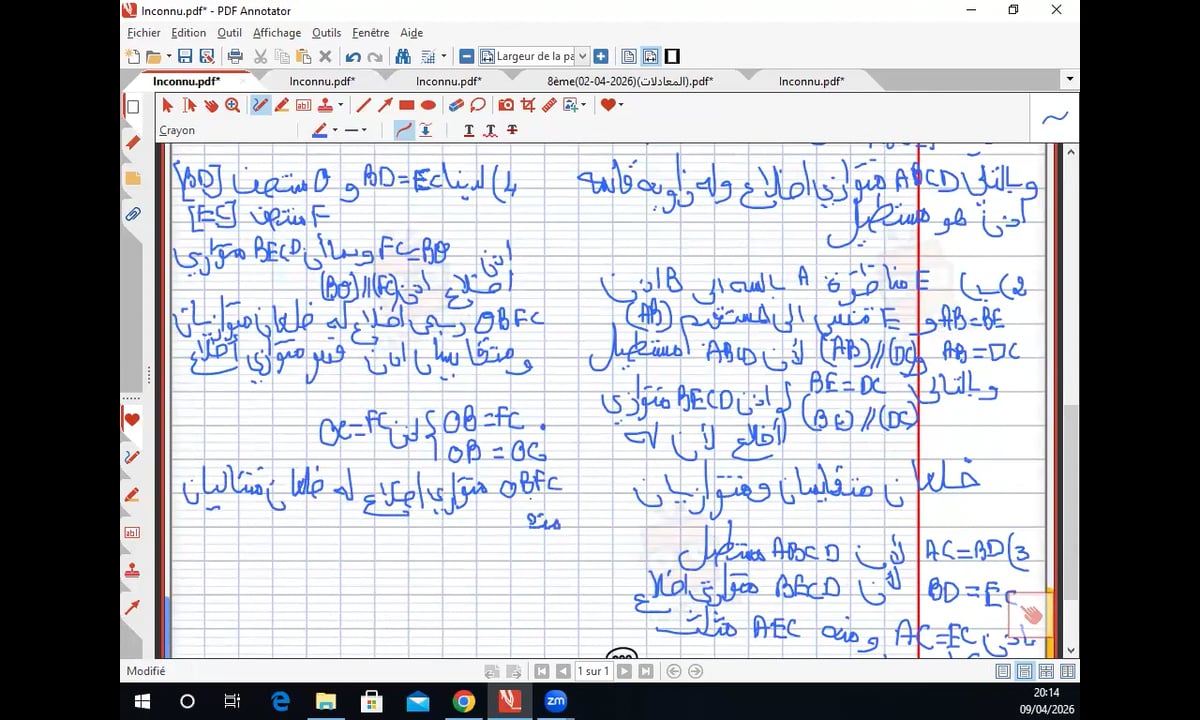 Inconnu.pdf* - PDF Annotator
Fichier Edition Outil Affichage Outils Fenêtre Aide
Largeur de la pa
Inconnu.pdf* Inconnu.pdf* Inconnu.pdf* 8ème(02-04-2026)(المعادلات).pdf* Inconnu.pdf*
Crayon
وبالتالي ABCD متوازي اضلاع وله زاوية قائمة
اذن هو مستطيل
2)ب) E مناظرة A بالنسبة الى B اذن
AB=BE و E تنتمي الى المستقيم (AB)
AB=DC و (AB)//(DC) لأن ABCD مستطيل
وبالتالي BE=DC
(BE)//(DC) اذن BECD متوازي
أضلاع لأن له
ضلعان متقايسان ومتوازيان
3) AC=BD لأن ABCD مستطيل
BD=EC لأن BECD متوازي اضلاع
اذن AC=EC ومنه AEC مثلث
4) لدينا BD=EC و O منتصف [BD]
F منتصف [EC]
اذن FC=BO وبما أن BECD متوازي
اضلاع اذن (BO)//(FC)
OBFC رباعي أضلاع له ضلعان متوازيان
ومتقايسان اذن فهو متوازي أضلاع
OB=FC
OB=OC اذن OC=FC
OBFC متوازي اضلاع له ضلعان متتاليان
1 sur 1
Modifié
20:14
09/04/2026